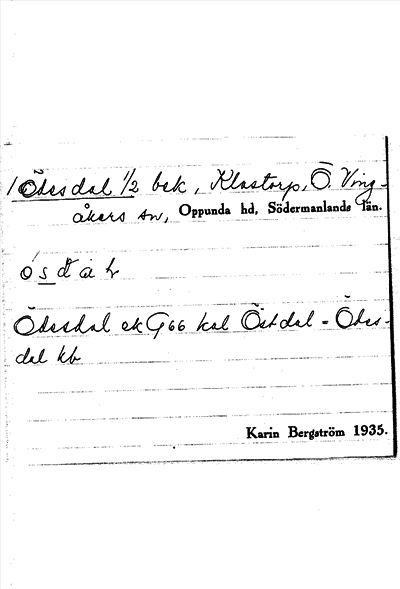 Ödesdal 1/2 bek, Klastorp, Ö. Ving-
åkers sn, Oppunda hd, Södermanlands län.
Ödesdal ek G66 kal Östdal - Ödes-
dal kb
Karin Bergström 1935.